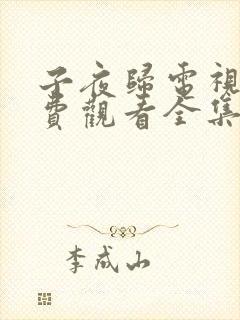 子夜歸電視
費觀看全集
李成山